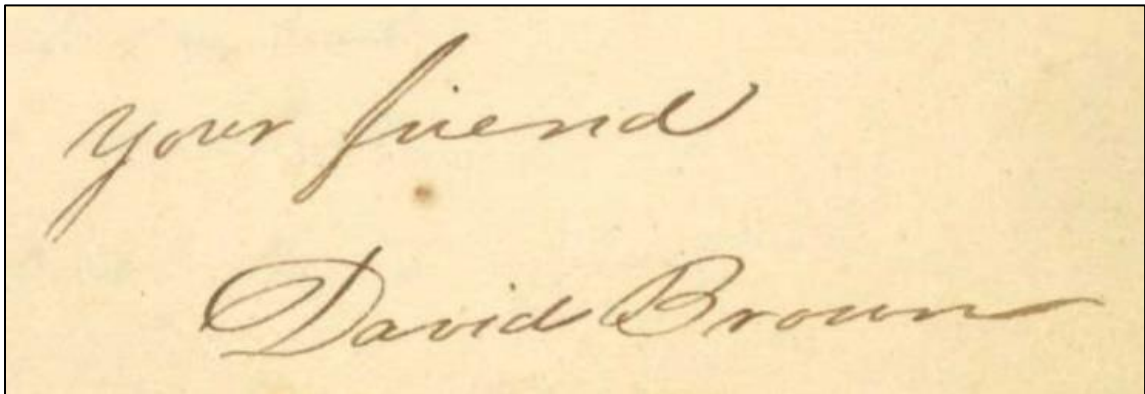 your friend
David Brown